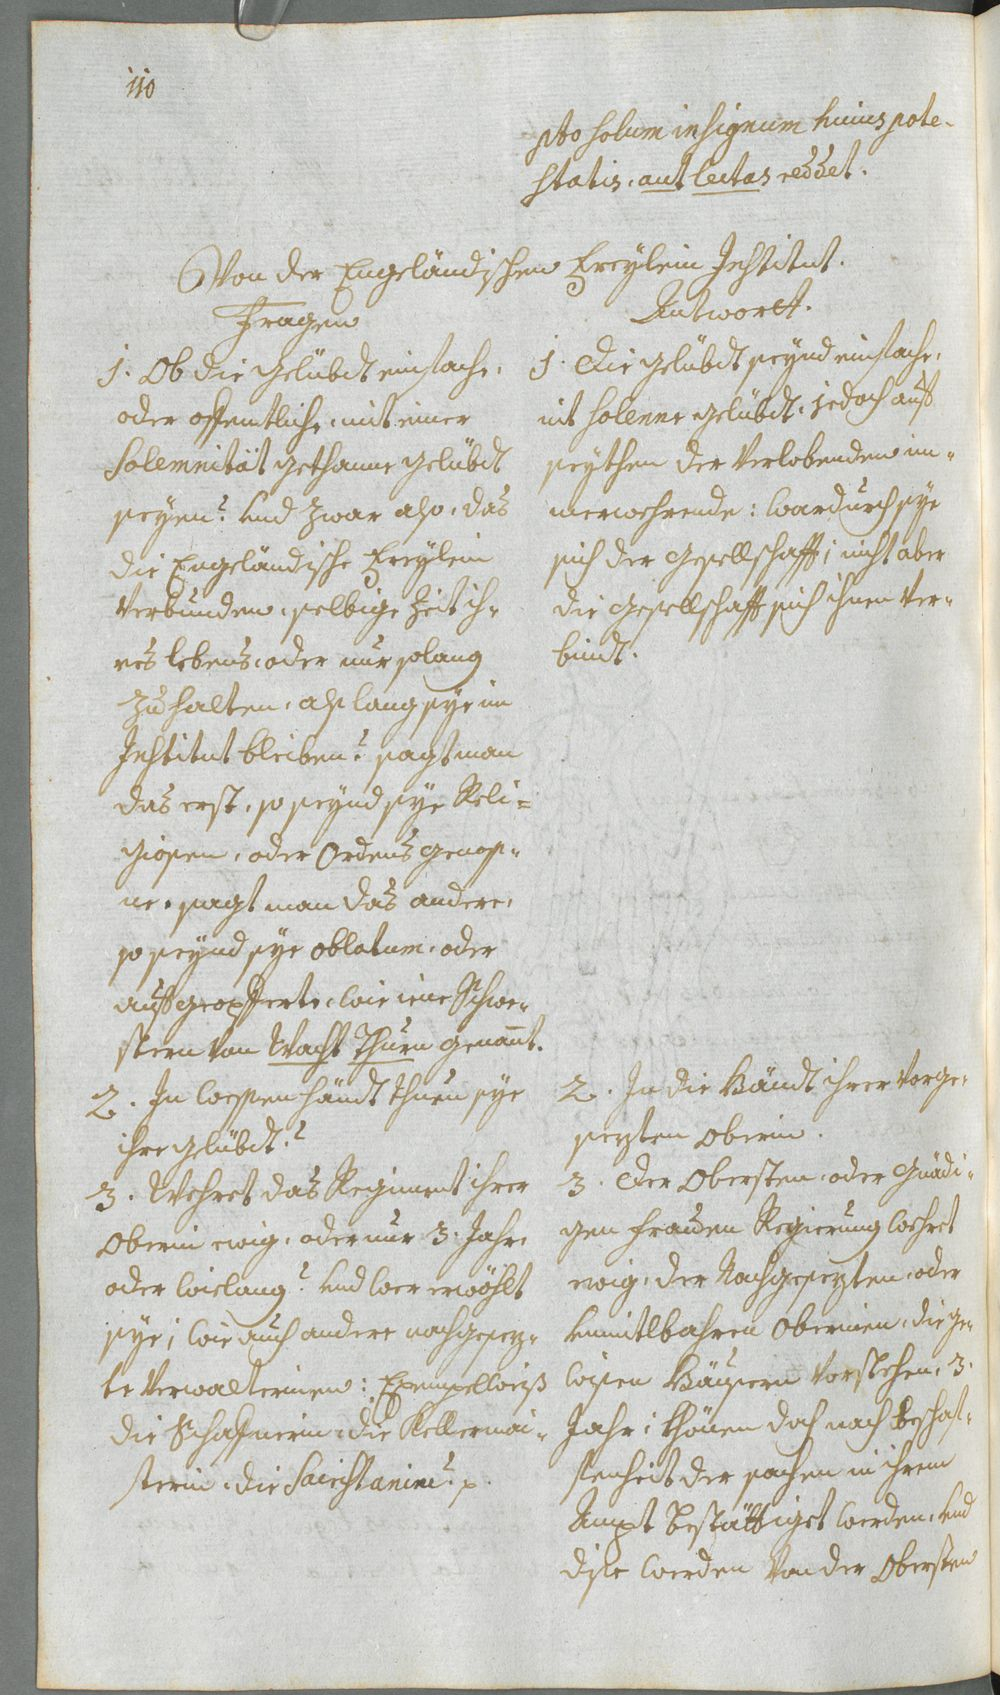 110
pto solum insignum huius pote-
statis, aut lectas reddet.
Von der Engeländischen Freÿlein Institut.
Fragen
1. Ob die gelübdt einfache,
oder offentliche, mit einer
Solemnität gethanne gelübdt
seÿen? und zwar also, das
die Engeländische Freÿlein
verbunden, selbige Zeit ih-
res lebens, oder nur solang
zu halten, als lang sÿe im
Institut bleiben? sagt man
das erst, so seÿnd sÿe Reli-
giosen, oder Ordens genoss-
ne, sagt man das andere,
so seÿnd sÿe oblatum, oder
auffgeopfferte, wie iene Schwe-
stern von Wacht Thurn genant.
2. In wessen händt thuen sÿe
ihre glübdt?
3. Wehret das Regiment ihrer
Oberin ewig, oder nur 3. Jahr,
oder wielang? und wer erwöhlt
sÿe; wie auch andere nachgesez-
te Verwalterinen: Exempelweiß
die Schafnerin, die Kellermai-
sterin, die Sacristanin? p.
Antwortt.
1. Die gelübdt seÿnd einfache,
nit solenne gelübdt, iedoch auff
seÿthen der Verlobenden im-
merwehrende: wardurch sÿe
sich der gesellschafft; nicht aber
die gesellschafft sich ihnen ver-
bindt.
2. In die Händt ihrer vorge-
sezten Oberin.
3. Der Obersten, oder Gnädi-
gen Frauen Regierung wehret
ewig, der Nachgesezten, oder
unmitlbahren Oberinen, die ge-
wisen Häusern vorstehen, 3.
Jahr; khönen doch nach beschaf-
fenheit der sachen in ihrem
Ampt bestättiget werden, und
dise werden von der Obersten